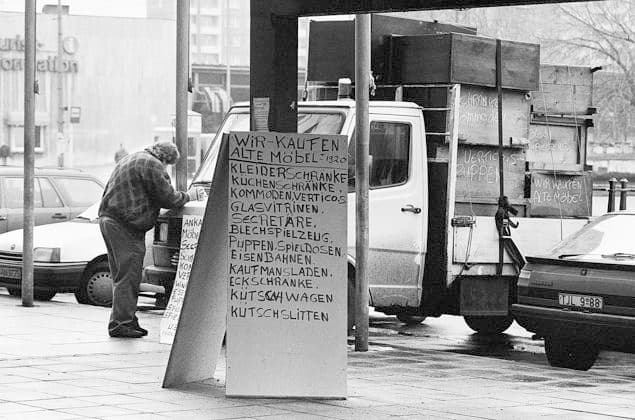 WIR-KAUFEN
ALTE MÖBEL-1920
KLEIDERSCHRÄNKE
KÜCHENSCHRÄNKE.
KOMMODEN, VERTICOS
GLASVITRINEN.
SECRETÄRE.
BLECHSPIELZEUG.
PUPPEN. SPIELDOSEN
EISENBAHNEN.
KAUFMANSLADEN.
ECKSCHRÄNKE.
KÜTSCHWAGEN
KUTSCHLITTEN
WIR KAUFEN
ALTE MÖBEL
ormation
TJL 9-88